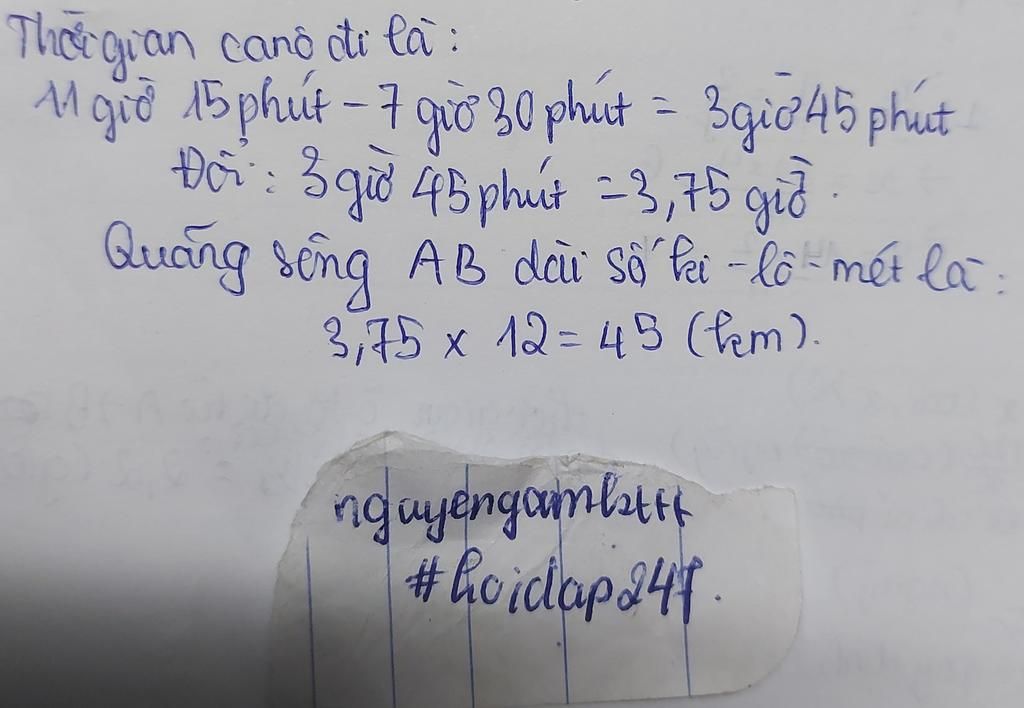 Thời gian canô đi là:
11 giờ 15 phút - 7 giờ 30 phút = 3 giờ 45 phút
Đổi: 3 giờ 45 phút = 3,75 giờ.
Quãng sông AB dài số ki-lô-mét là:
3,75 x 12 = 45 (km).
#hoidap247.